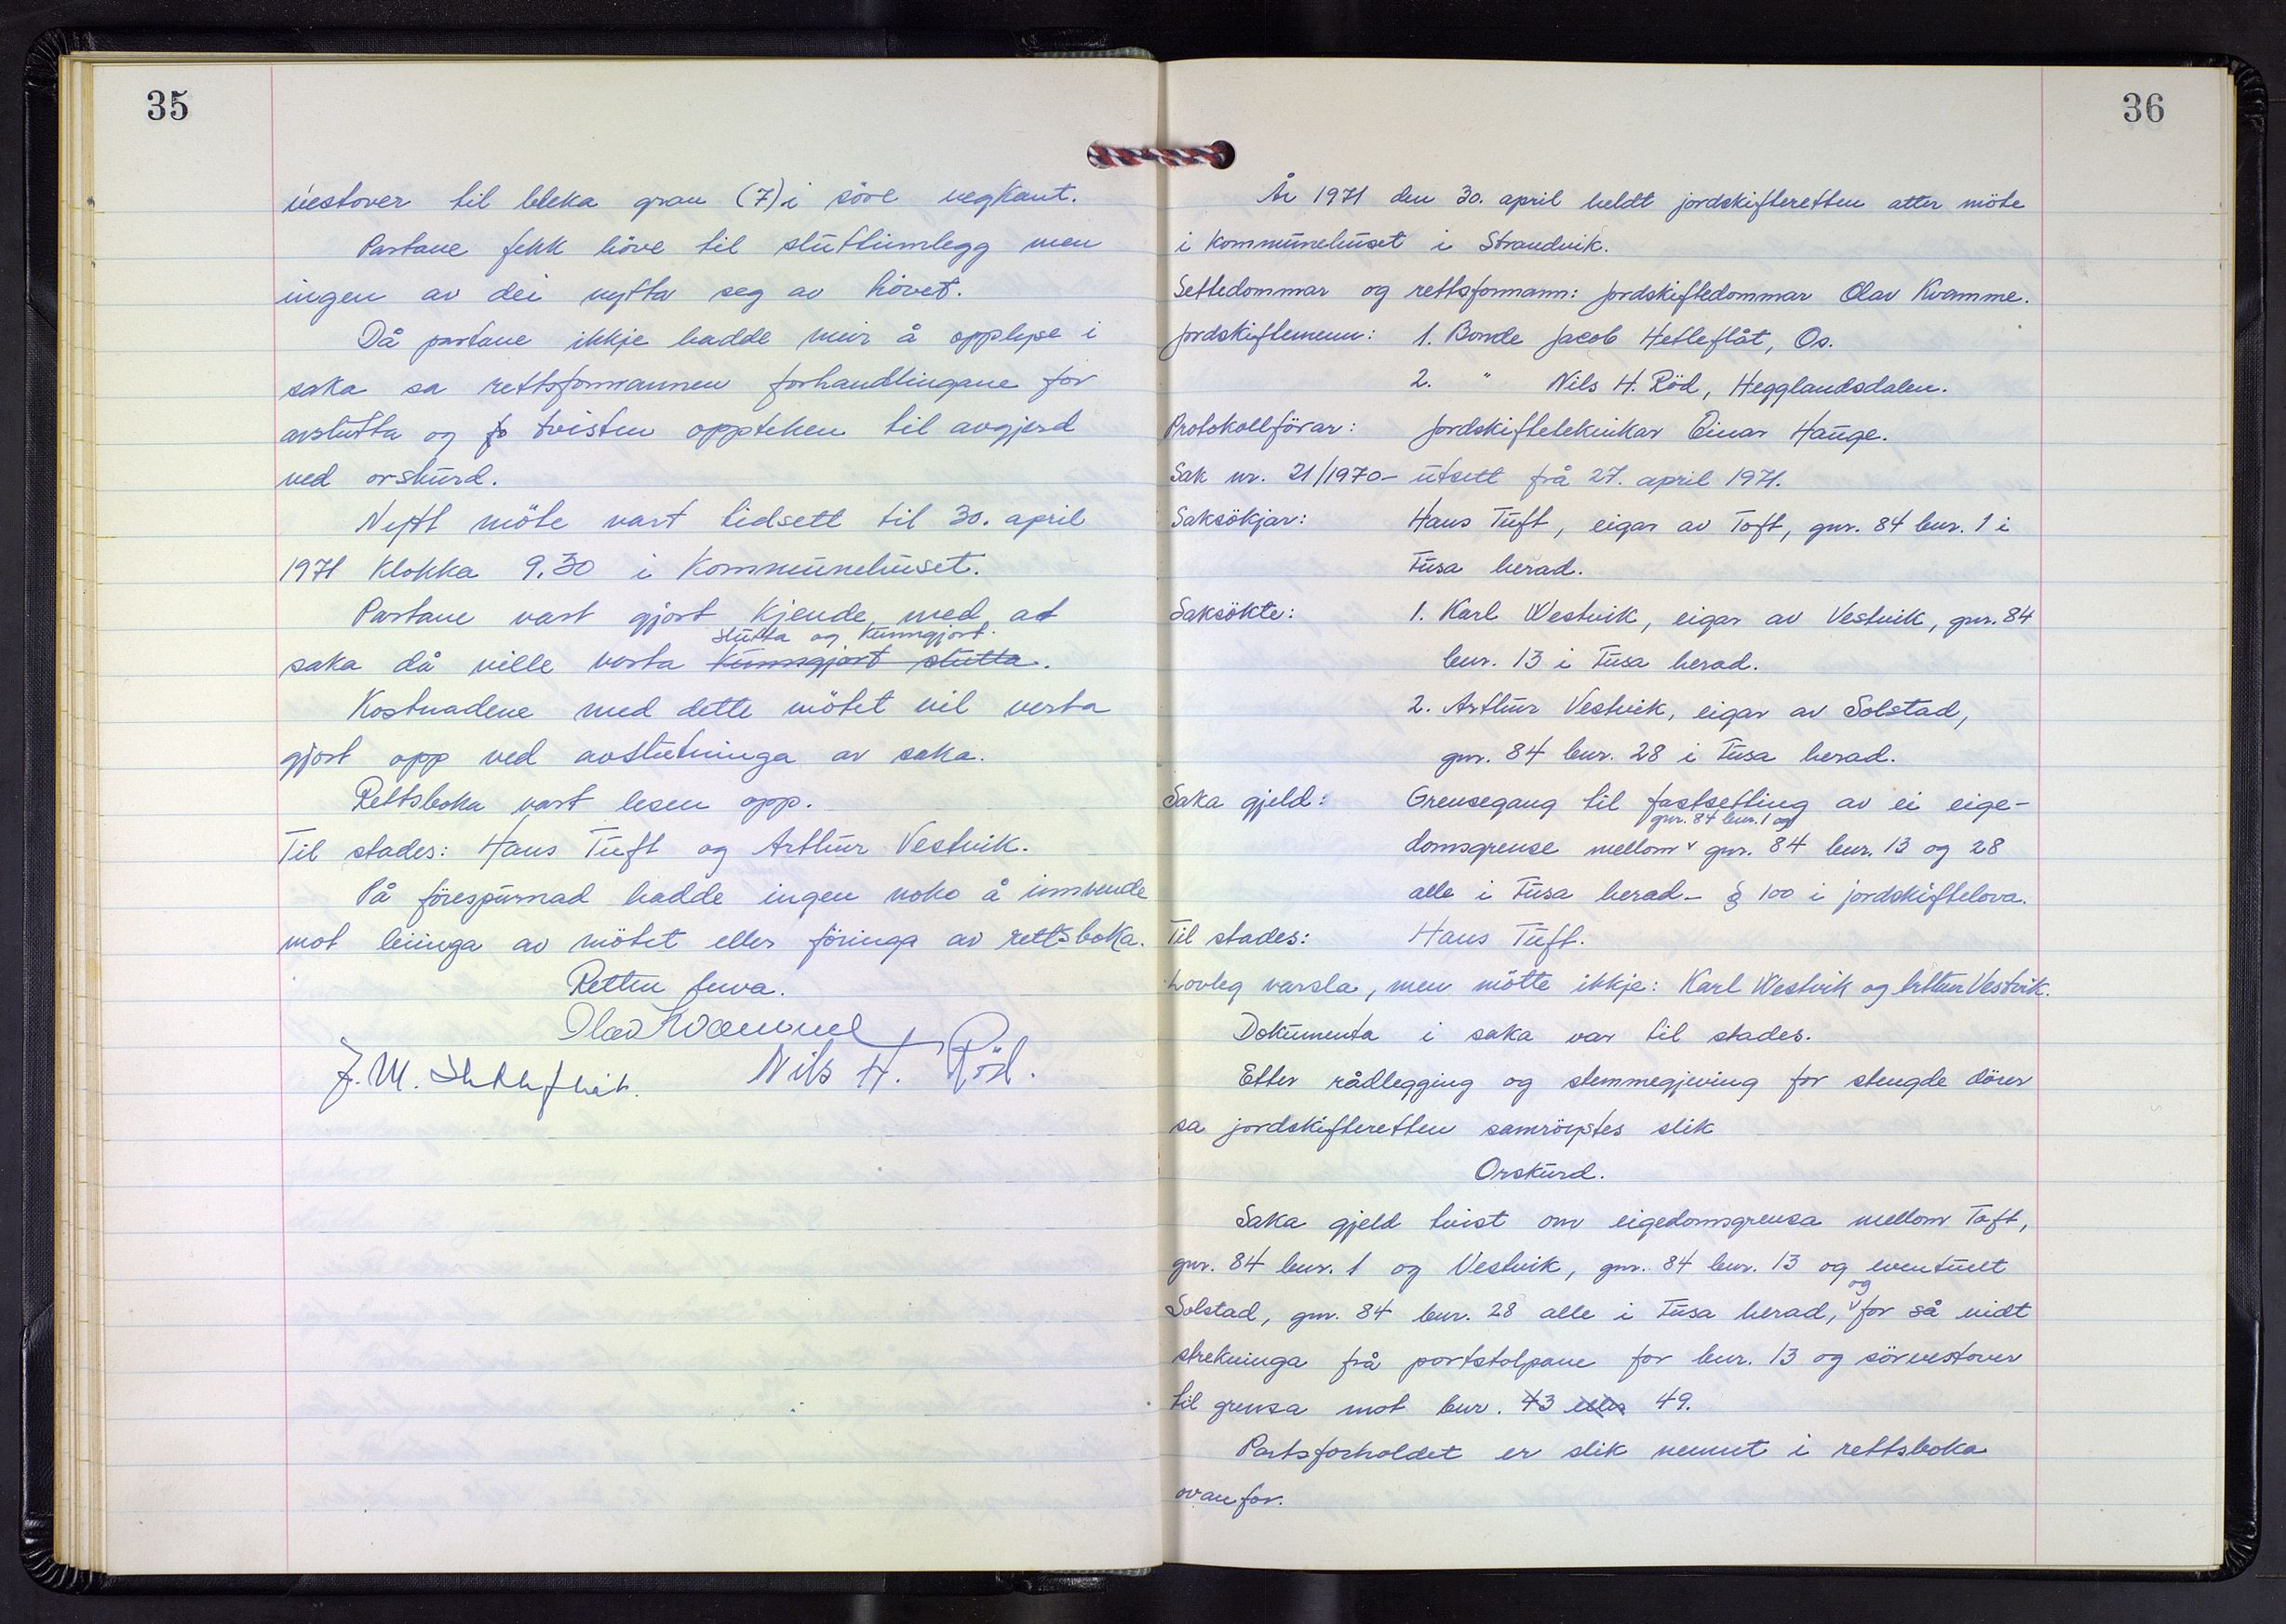 35
vestover til bleka gran (7) i søre vegkant.
Partane fekk höve til sluttinnlegg men
ingen av dei nytta seg av hövet.
Då partane ikkje hadde meir å opplyse i
saka sa rettsformannen forhandlingane for
avslutta og tvisten oppteken til avgjerd
ved orskurd.
Neste möte vart tidsett til 30. april
1971 klokka 9.30 i Kommunehuset.
Partane vart gjort kjende med at
slutta og kunngjort.
saka då ville verta kunngjort slutta.
Kostnadene med dette mötet vil verta
gjort opp ved avslutninga av saka.
Rettsboka vart lesen opp.
Til stades: Hans Tuft og Arthur Vestvik.
På förespurnad hadde ingen noko å innvende
mot leiinga av mötet eller föringa av rettsboka.
Retten heva.
Olav Kvamme
Nils H. Röd.
36
År 1971 den 30. april heldt jordskifteretten atter möte
i kommunehuset i Strandvik.
Settedommar og rettsformann: Jordskiftedommar Olav Kvamme.
Jordskiftemenn: 1. Bonde Jacob Hetleflåt, Os.
2. " Nils H. Röd, Hegglandsdalen.
Protokollförar: Jordskifteteknikar Einar Hauge.
Sak nr. 21/1970 - utsett frå 27. april 1971.
Saksökjar: Hans Tuft, eigar av Toft, gnr. 84 bnr. 1 i
Fusa herad.
Saksökte: 1. Karl Westvik, eigar av Vestvik, gnr. 84
bnr. 13 i Fusa herad.
2. Arthur Vestvik, eigar av Solstad,
gnr. 84 bnr. 28 i Fusa herad.
Saka gjeld: Grensegang til fastsetting av ei eige-
gnr. 84 bnr. 1 og
domsgrense mellom gnr. 84 bnr. 13 og 28
alle i Fusa herad - § 100 i jordskiftelova.
Til stades: Hans Tuft.
Lovleg varsla, men mötte ikkje: Karl Westvik og Arthur Vestvik.
Dokumenta i saka var til stades.
Etter rådlegging og stemmegjeving for stengde dörer
sa jordskifteretten samröystes slik
Orskurd.
Saka gjeld tvist om eigedomsgrensa mellom Toft,
gnr. 84 bnr. 1 og Vestvik, gnr. 84 bnr. 13 og eventuelt
og
Solstad, gnr. 84 bnr. 28 alle i Fusa herad, for så vidt
strekninga frå portstolpane for bnr. 13 og sörvestover
til grensa mot bnr. 43 eller 49.
Partsforholdet er slik nemnt i rettsboka
ovanfor.